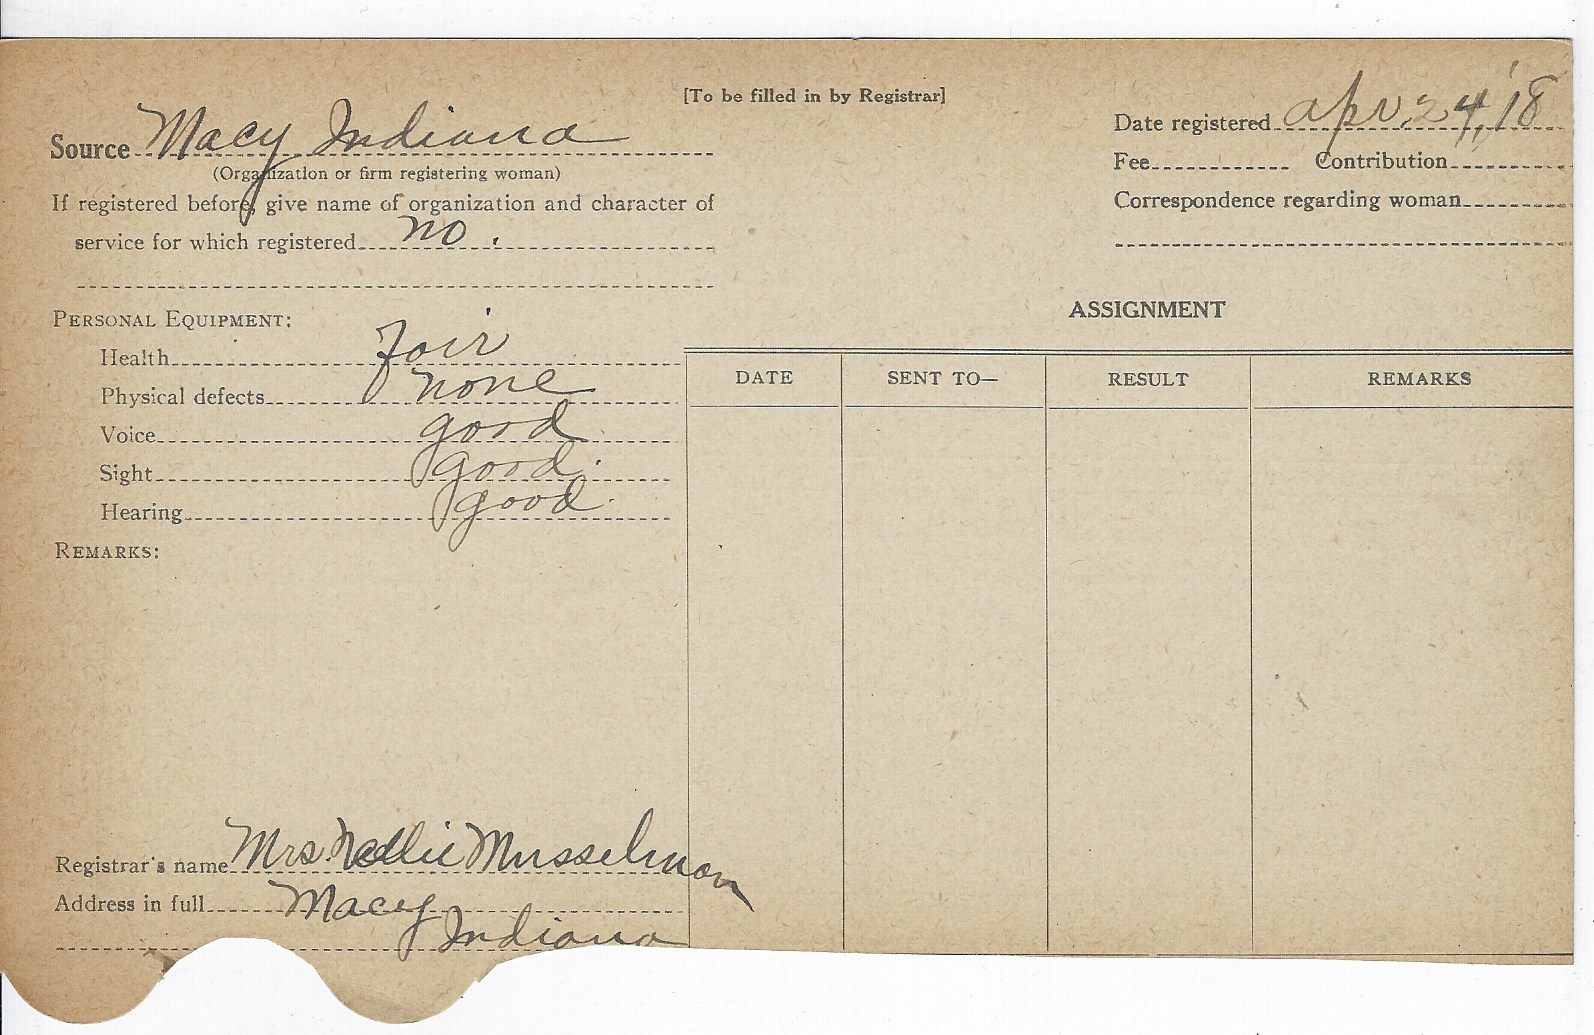 [To be filled in by Registrar]
Source Macy Indiana
(Organization or firm registering woman)
If registered before, give name of organization and character of
service for which registered no.
Date registered Apr. 24, '18
Fee Contribution
Correspondence regarding woman
PERSONAL EQUIPMENT:
Health Fair
Physical defects none
Voice good
Sight good.
Hearing good.
REMARKS:
Registrar's name Mrs. Nellie Musselman
Address in full Macy
Indiana
ASSIGNMENT
DATE SENT TO— RESULT REMARKS